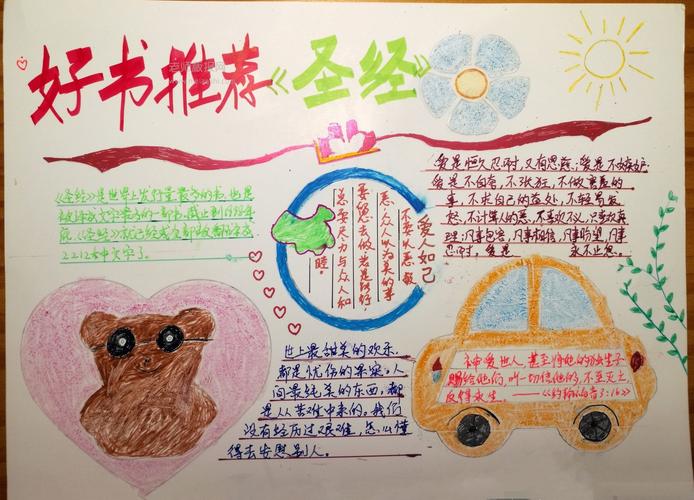 好书推荐《圣经》
《圣经》是世界上发行量最多的书,也是
被译成文字最多的一部书,截止到1995年
底,《圣经》就已经或全部被翻译成
2212种文字了。
爱人如己
不要以恶报
恶,众人以为美的事
要留意去做,若是能行,
总要尽力与众人和
睦。
爱是恒久忍耐,又有恩慈;爱是不嫉妒,
爱是不自夸,不张狂,不做害羞的
事,不求自己的益处,不轻易发
怒,不计算人的恶,不喜欢不义,只喜欢真
理;凡事包容,凡事相信,凡事盼望,凡事
忍耐,爱是永不止息。
世上最甜美的欢乐,
都是忧伤的果实;人
间最纯美的东西,都
是从苦难中来的。我们
没有经历过艰难,怎么懂
得去安慰别人。
神爱世人,甚至将他的独生子
赐给他们,叫一切信他的,不至灭亡,
反得永生。——《约翰福音3:16》